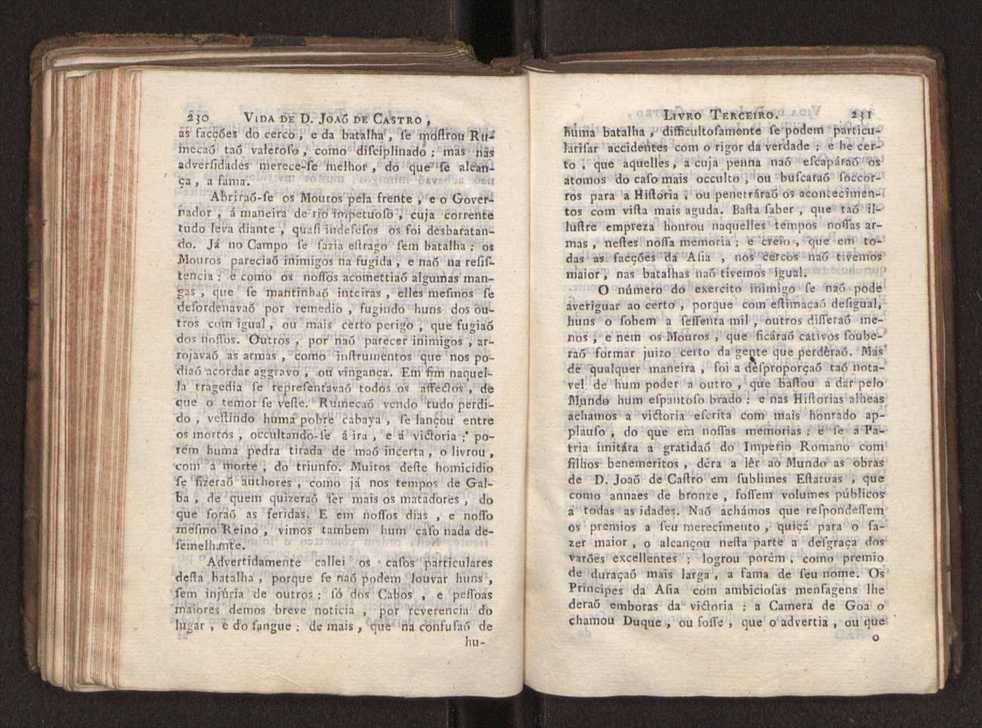 230 VIDA DE D. JOAÕ DE CASTRO ,
as facções do cerco , e da batalha , ſe moſtrou Ru-
mecaõ taõ valeroſo , como diſciplinado ; mas nas
adverſidades merece-ſe melhor , do que ſe alcan-
ça , a fama.
Abriraõ-ſe os Mouros pela frente , e o Gover-
nador , á maneira de rio impetuoſo , cuja corrente
tudo leva diante , quaſi indefeſos os foi desbaratan-
do. Já no Campo ſe fazia eſtrago ſem batalha ; os
Mouros pareciaõ inimigos na fugida , e naõ na reſiſ-
tencia : e como os noſſos acomettiaõ algumas man-
gas , que ſe mantinhaõ inteiras , elles meſmos ſe
deſordenavaõ por remedio , fugindo huns dos ou-
tros com igual , ou mais certo perigo , que fugiaõ
dos noſſos. Outros , por naõ parecer inimigos , ar-
rojavaõ as armas , como inſtrumentos que nos po-
diaõ acordar aggravo , ou vingança. Em fim naquel-
la tragedia ſe repreſentavaõ todos os affectos , de
que o temor ſe veſte. Rumecaõ vendo tudo perdi-
do , veſtindo huma pobre cabaya , ſe lançou entre
os mortos , occultando-ſe á ira , e á victoria ; po-
rém huma pedra tirada de maõ incerta , o livrou ,
com a morte , do triunfo. Muitos deſte homicidio
ſe fizeraõ authores , como já nos tempos de Gal-
ba , de quem quizeraõ ſer mais os matadores , do
que foraõ as feridas. E em noſſos dias , e noſſo
meſmo Reino , vimos tambem hum caſo nada de-
ſemelhante.
Advertidamente callei os caſos particulares
deſta batalha , porque ſe naõ podem louvar huns ,
ſem injúria de outros ; ſó dos Cabos , e peſſoas
maiores demos breve noticia , por reverencia do
lugar , e do ſangue : de mais , que na confuſaõ de
hu-
LIVRO TERCEIRO. 231
huma batalha , difficultoſamente ſe podem particu-
lariſar accidentes com o rigor da verdade ; e he cer-
to , que aquelles , a cuja penna naõ eſcapáraõ os
atomos do caſo mais occulto , ou buſcaraõ ſoccor-
ros para a Hiſtoria , ou penetráraõ os acontecimen-
tos com viſta mais aguda. Baſta ſaber , que taõ il-
luſtre empreza honrou naquelles tempos noſſas ar-
mas , neſtes noſſa memoria ; e creio , que em to-
das as facções da Aſia , nos cercos naõ tivemos
maior , nas batalhas naõ tivemos igual.
O número do exercito inimigo ſe naõ pode
averiguar ao certo , porque com eſtimacaõ deſigual,
huns o ſobem a ſeſſenta mil , outros diſſeraõ me-
nos , e nem os Mouros , que ficáraõ cativos ſoube-
raõ formar juizo certo da gente que perdêraõ. Mas
de qualquer maneira , foi a deſproporçaõ taõ nota-
vel de hum poder a outro , que baſtou a dar pelo
Mundo hum eſpantoſo brado ; e nas Hiſtorias alheas
achamos a victoria eſcrita com mais honrado ap-
plauſo , do que em noſſas memorias ; e ſe a Pa-
tria imitára a gratidaõ do Imperio Romano com
filhos benemeritos , déra a lêr ao Mundo as obras
de D. Joaõ de Caſtro em ſublimes Eſtatuas , que
como annaes de bronze , foſſem volumes públicos
a todas as idades. Naõ achámos que reſpondeſſem
os premios a ſeu merecimento , quiçá para o fa-
zer maior , o alcançou neſta parte a deſgraça dos
varões excellentes ; logrou porém , como premio
de duraçaõ mais larga , a fama de ſeu nome. Os
Principes da Aſia com ambicioſas menſagens lhe
deraõ emboras da victoria ; a Camera de Goa o
chamou Duque , ou foſſe , que o advertia , ou que
o